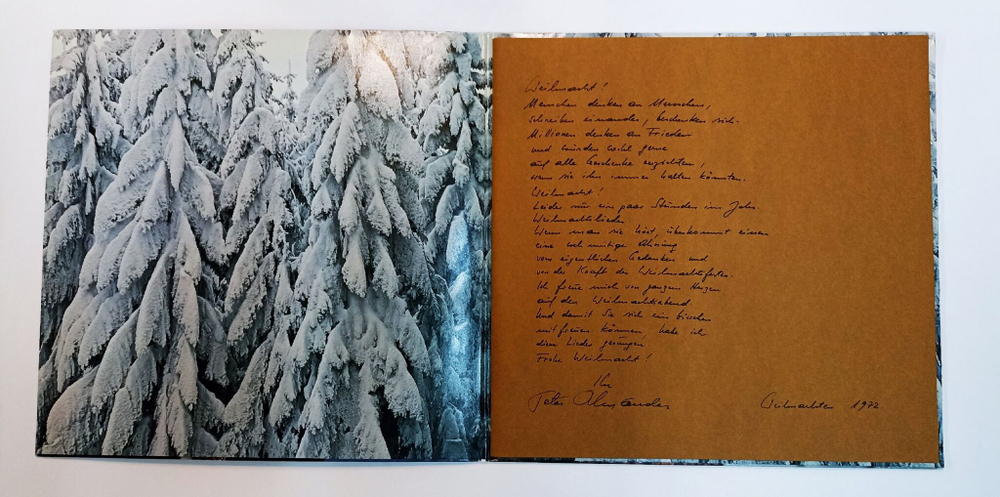 Weihnacht!
Menschen denken an Menschen,
schreiben einander, beschenken sich.
Millionen denken an Frieden
und würden wohl gerne
auf alle Geschenke verzichten,
wenn sie ihn immer halten könnten.
Weihnacht!
Leider nur ein paar Stunden im Jahr.
Weihnachtslieder
Wenn man sie hört, überkommt einen
eine wehmütige Ahnung
vom eigentlichen Gedanken und
von der Kraft des Weihnachtsfestes.
Ich freue mich von ganzem Herzen
auf den Weihnachtsabend
Und damit Sie sich ein bisschen
mitfreuen können habe ich
diese Lieder gesungen
Frohe Weihnacht!
Ihr
Peter Alexander
Weihnachten 1972